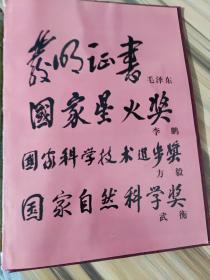 發明证書
毛泽东
國家星火奖
李鹏
国家科学技术進步奖
方毅
国家自然科学奖
武衡